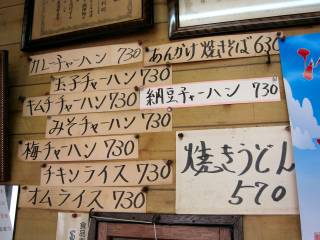 カレーチャーハン 730
玉子チャーハン 730
キムチチャーハン 730
みそチャーハン 730
梅チャーハン 730
チキンライス 730
オムライス 730
あんかけ焼きそば 630
納豆チャーハン 730
焼きうどん
570